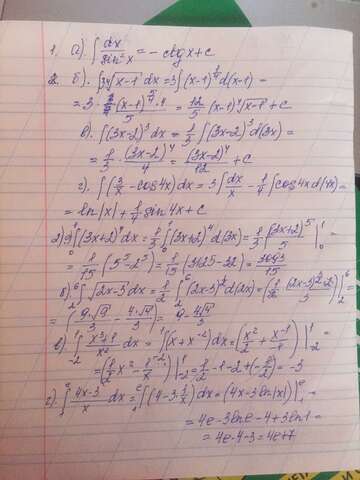 1. а). ∫ dx/sin²x = - ctg x + c
2. б). ∫ 3∜x-1 dx = 3∫(x-1)^¼ d(x-1) =
= 3 · (x-1)^5/4 · 4 / 5 = 12/5 (x-1)∜x-1 + c
в). ∫(3x-2)³dx = 1/3 ∫(3x-2)³d(3x) =
= 1/3 · (3x-2)⁴/4 = (3x-2)⁴/12 + c
г). ∫(3/x - cos4x)dx = 3∫dx/x - 1/4 ∫cos4x d4x =
= ln|x| + 1/4 sin4x + C
∫(3x+2)⁴dx = 1/3 ∫(3x+2)⁴d(3x) = 1/3 (3x+2)⁵/5 |₀¹ =
= 1/15 (5⁵-2⁵) = 1/15 (3125-32) = 3093/15
б). ₂∫⁶ √2x-3 dx = 1/2 ₂∫⁶ (2x-3)^½ d(2x) =
в). ₋₂∫¹ x³+1/x² dx = ∫(x + x⁻²)dx = (x²/2 + x⁻¹/-1) |₋₂¹
= -3
г). ₁∫ᵉ 4x-3/x dx = ∫(4-3·1/x)dx = (4x-3ln|x|)|₁ᵉ =
= 4e-3lne-4+3ln1 =
= 4e-4-3 = 4e+7